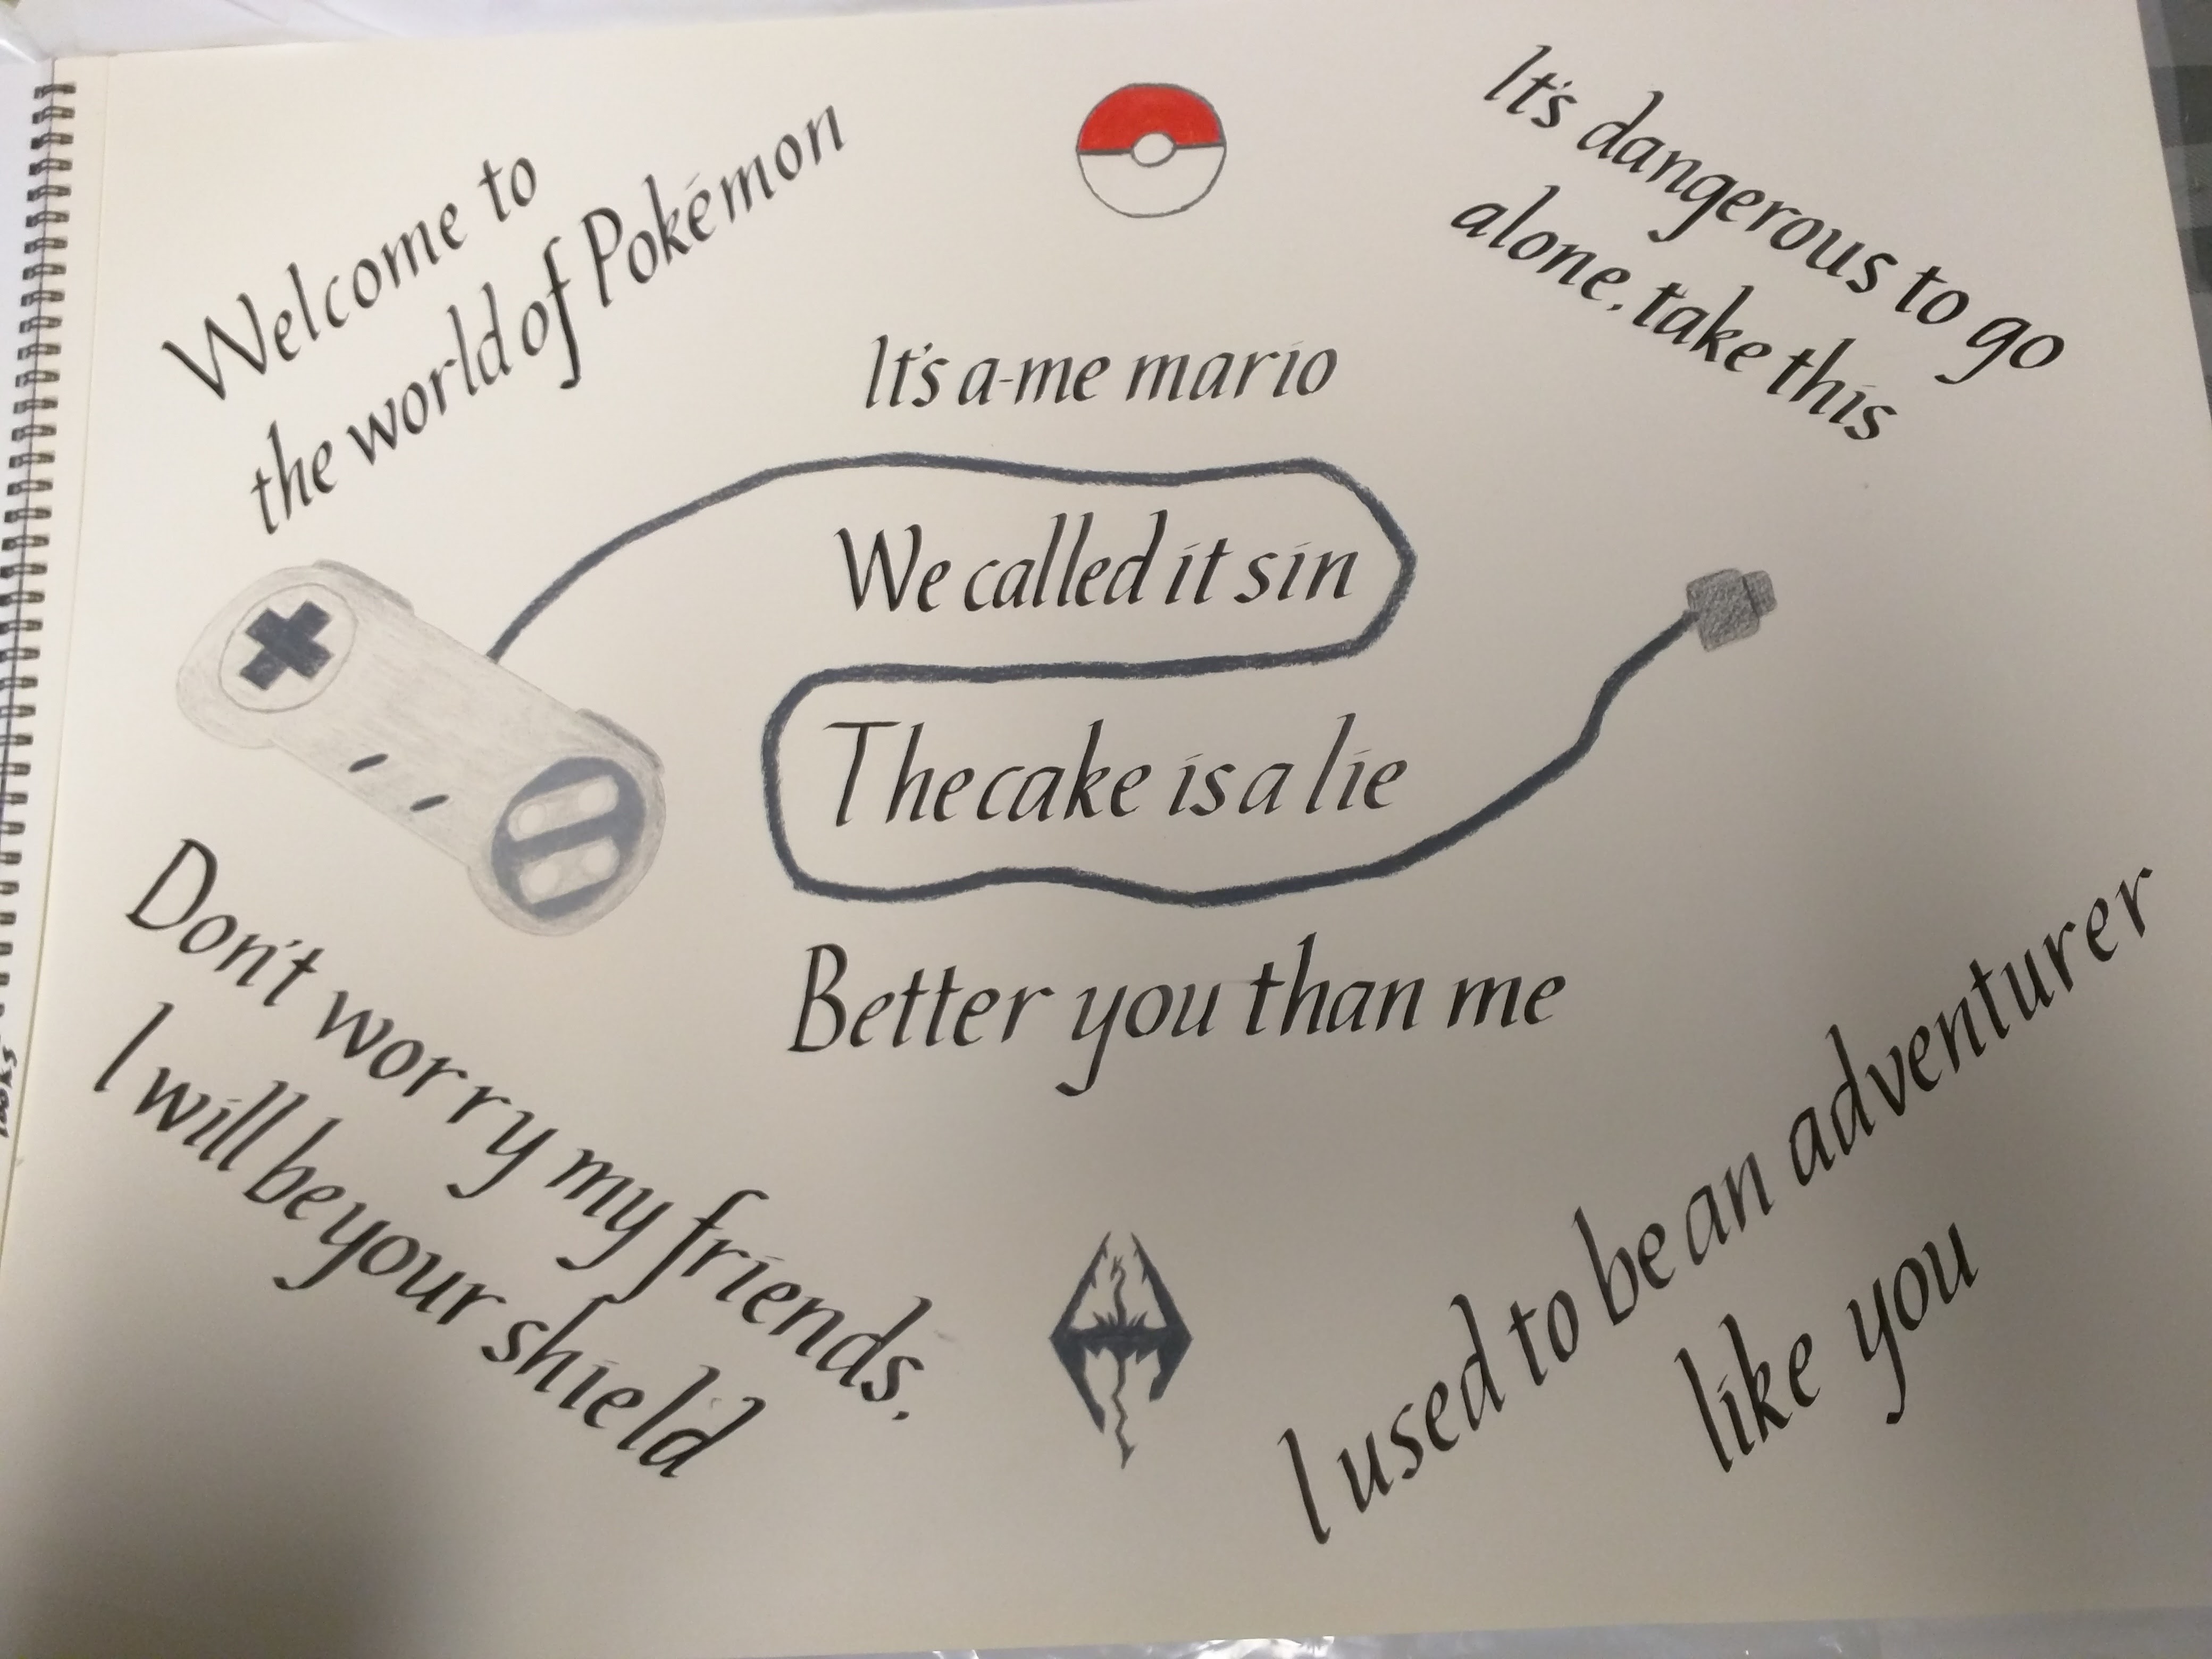 Welcome to
the world of Pokémon
It's dangerous to go
alone, take this
It's a-me mario
We called it sin
The cake is a lie
Better you than me
Don't worry my friends.
I will be your shield
I used to be an adventurer
like you